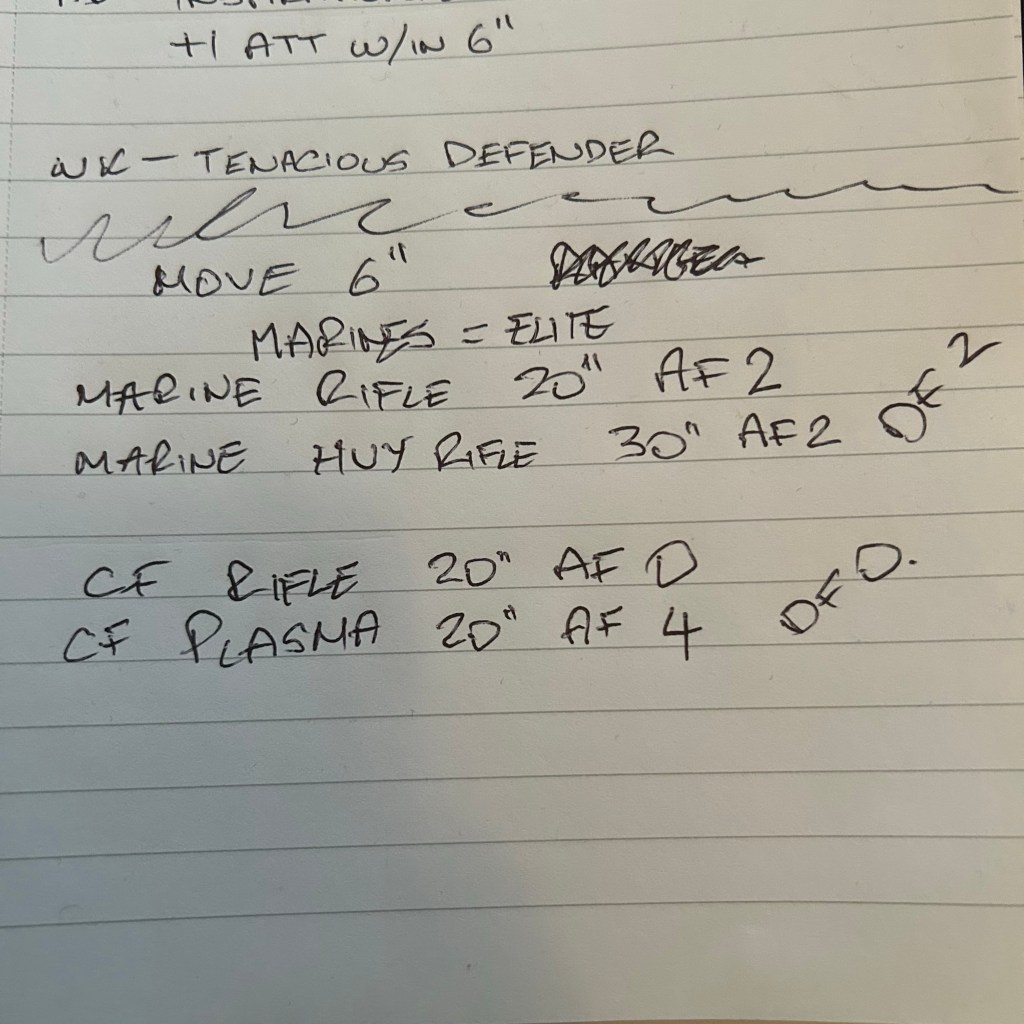 +1 ATT W/IN 6"
WK — TENACIOUS DEFENDER
MOVE 6"
MARINES = ELITE
MARINE RIFLE 20" AF 2
MARINE HVY RIFLE 30" AF 2 DEF 2
CF RIFLE 20" AF 0
CF PLASMA 20" AF 4 DEF 0.